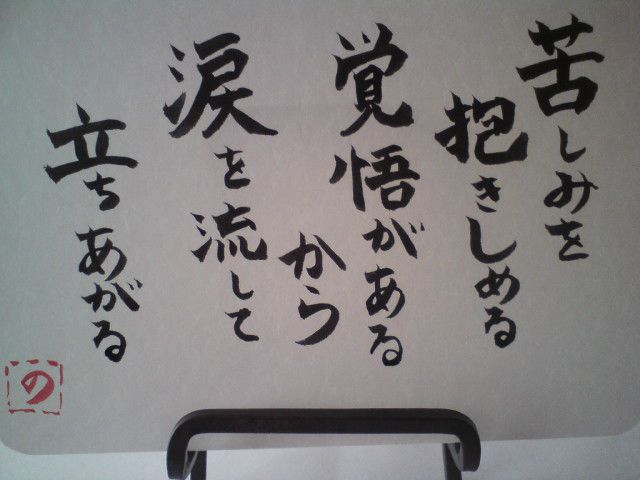 苦しみを
抱きしめる
覚悟がある
から
涙を流して
立ちあがる
の